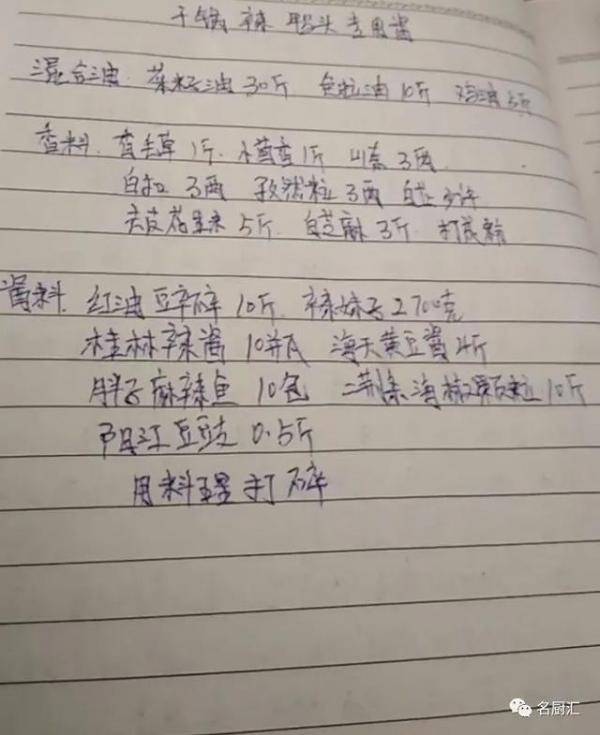 干锅辣鸭头专用酱
混合油 菜籽油30斤 色拉油10斤 鸡油5斤
香料 香毛草1斤 小茴香1斤 山奈3两
白扣3两 孜然粒3两 白芷3两
去皮花生米5斤 白芝麻3斤 打成粉
酱料 红油豆辛碎10斤 辣妹子2700克
桂林辣酱10并瓦 海天黄豆酱4斤
胖子麻辣鱼10包 二荆条海椒颗粒10斤
阳江豆豉0.5斤
用料理打碎
名厨汇